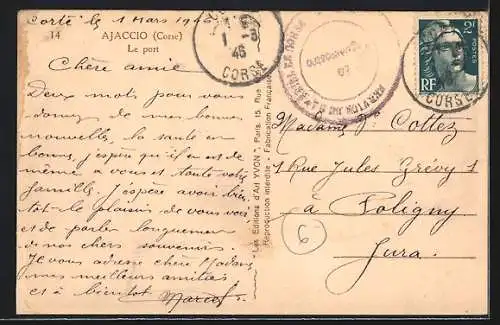 Corte le 1 Mars 1946
14 AJACCIO (Corse)
Le port
Chère amie
Deux mots pour vous
donner de mes bonnes
nouvelles, la santé est
bonne, j'espère qu'il en est de
même a vous et toute votre
famille. J'espère avoir bien-
tot le plaisir de vous voir
et de parler longuement
de nos chers souvenirs.
Je vous adresse chère Madame
mes meilleurs amitiés
et à bientot Marcel
"Les Editions d'Art YVON", Paris, 15, Rue
Reproduction interdite - Fabrication Française
1
46
CORSE
2F
POSTES
RF
CORSE
Madame Cottez
1 Rue Jules Grévy 1
à Poligny
Jura.
6